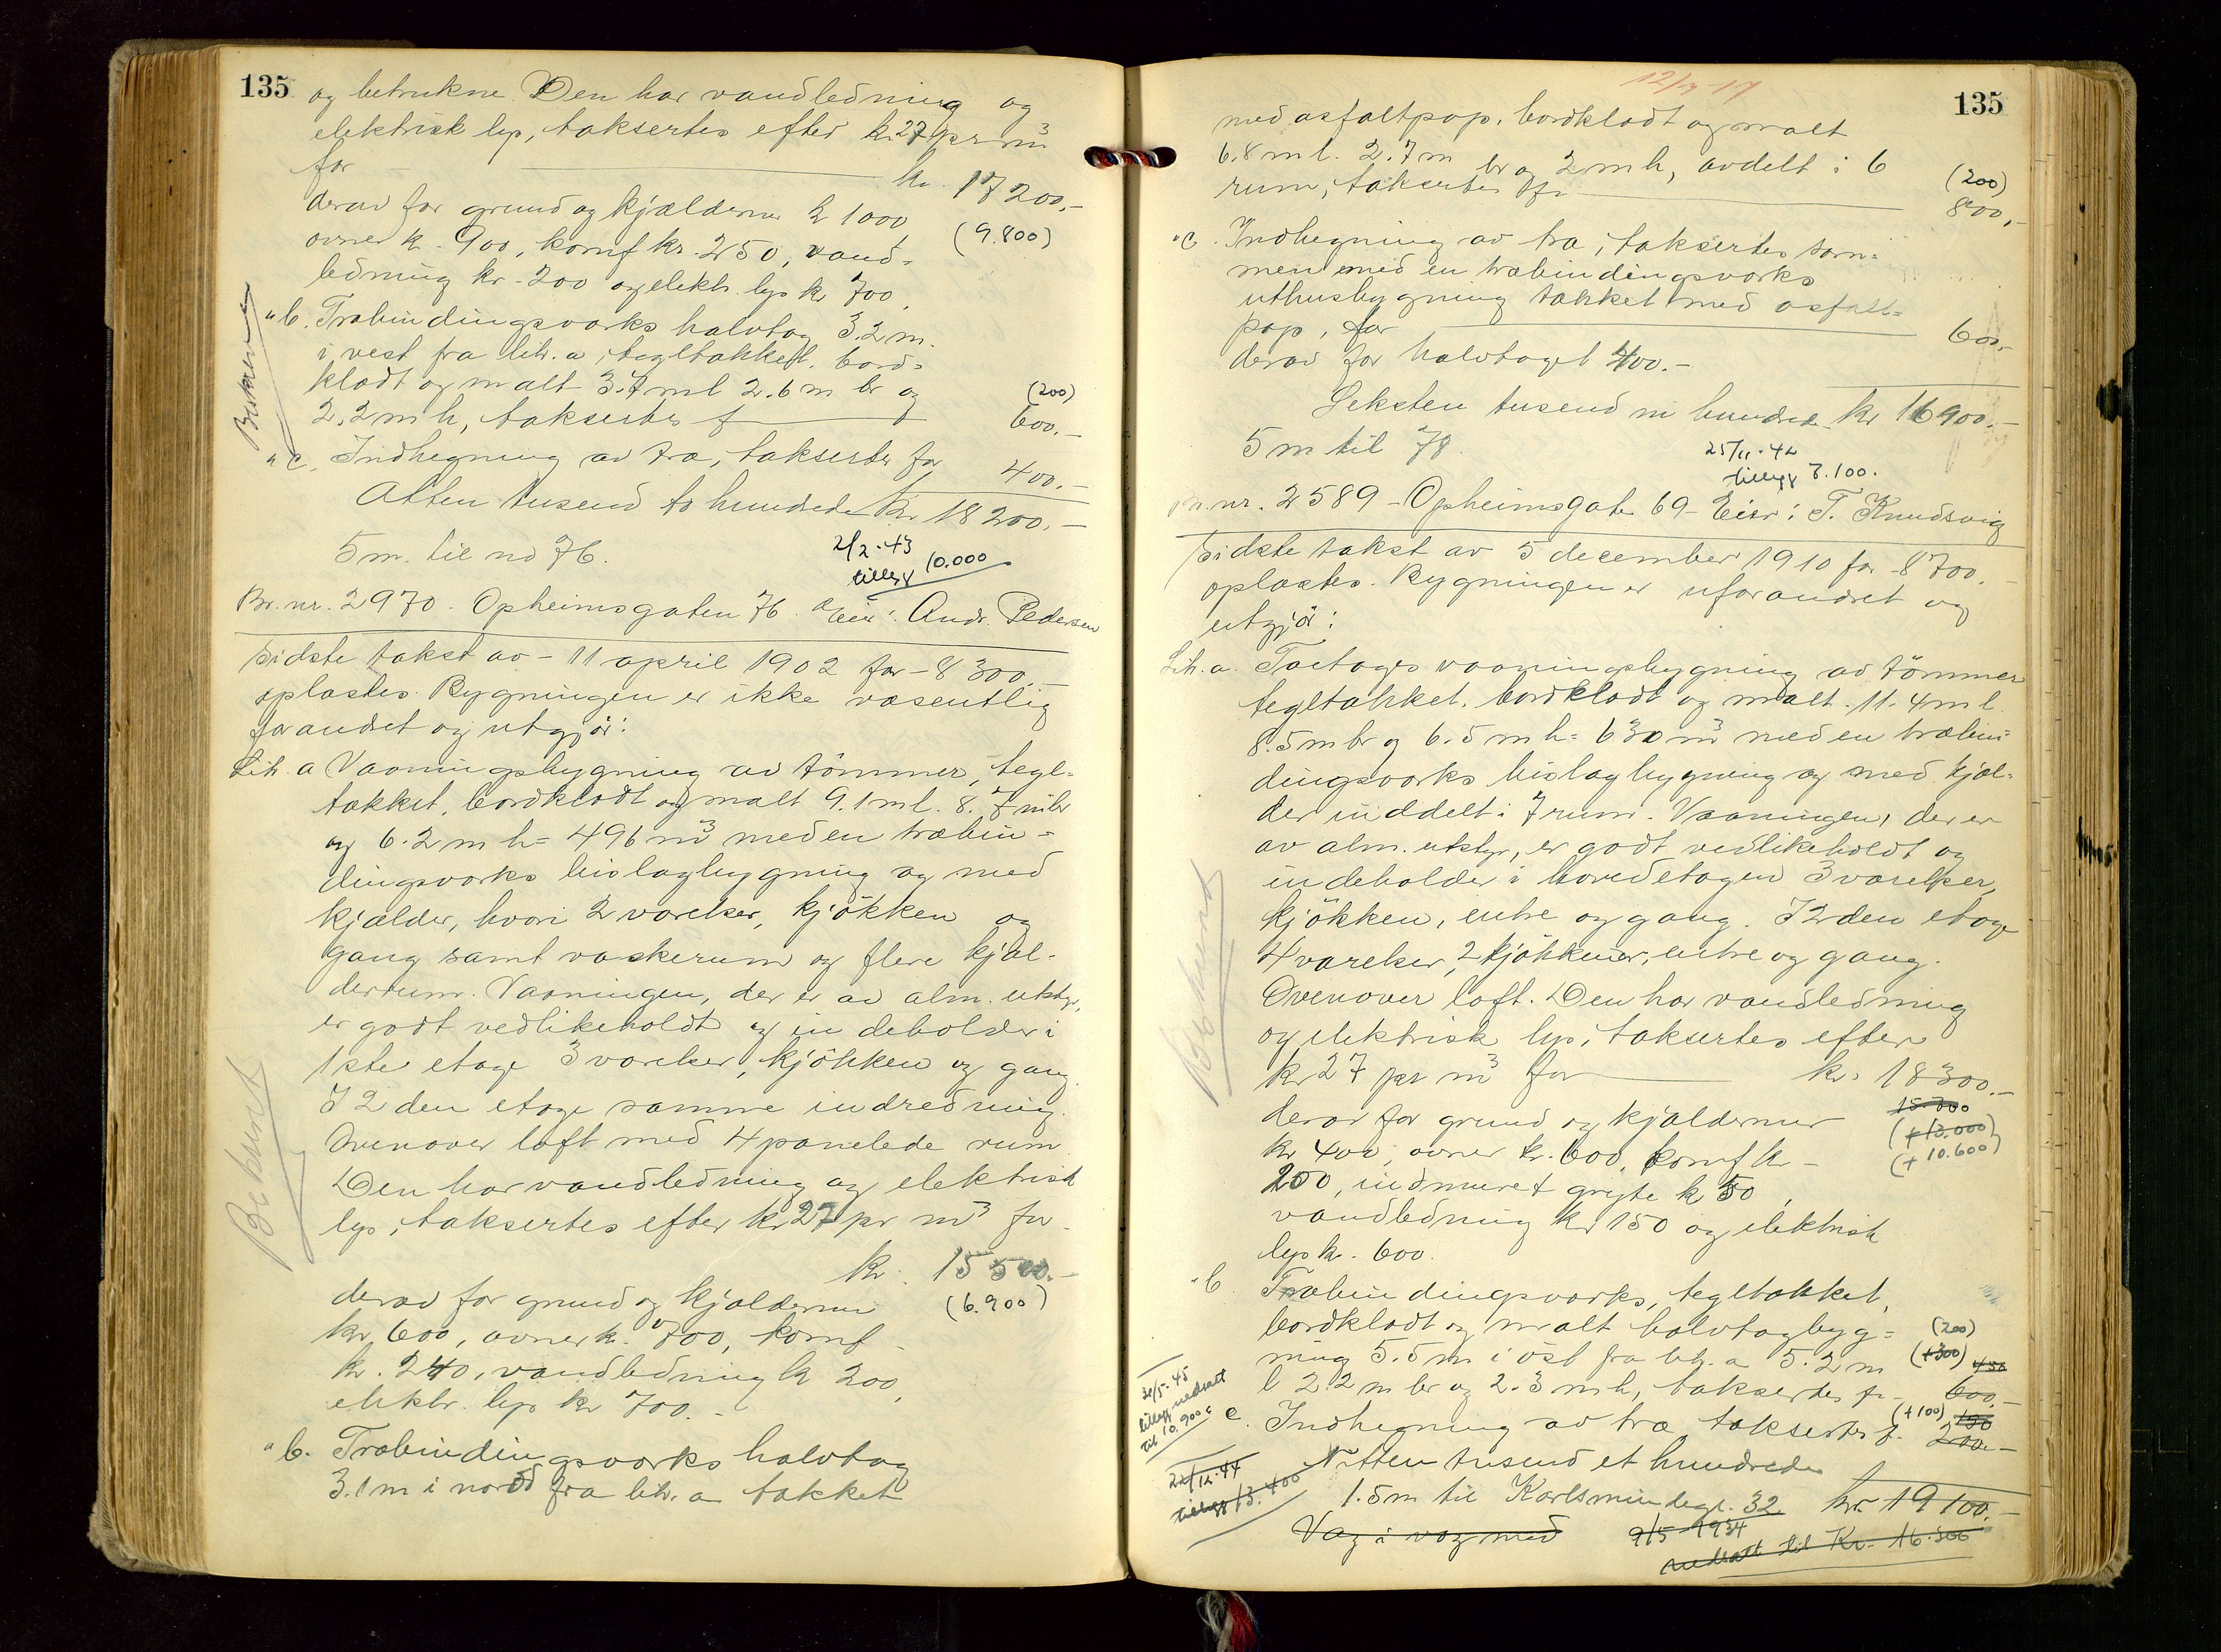 135
og betrukne. Den har vandledning og
elektrisk lys, taksertes efter kr 27 pr m³
for kr. 17200,-
derav for grund og kjældermur kr 1000, (9.800)
ovner kr. 900, komf kr. 250, vand=
ledning kr. 200 og elektr. lys kr 700,
"b. Træbindingsværks halvtag 3.2 m.
i vest fra litr. a, tegltækket, bord=
klædt og malt 3.7 m l 2.6 m br og (200)
2.2 m h, taksertes f 600.-
"c. Indhegning av træ, taksertes for 400.-
Atten tusend to hundrede kr. 18200.-
5 m. til no 76.
2/2-43
tillegg 10.000
Br. nr. 2970. Opheimsgaten 76. Eier: Andr. Pedersen
Sidste takst av - 11 april 1902 for - 8300.-
oplæstes. Bygningen er ikke væsentlig
forandret og utgjör:
Litr. a Vaaningsbygning av tömmer, tegl=
tækket, bordklædt og malt 9.1 m l. 8.7 m br
og 6.2 m h = 496 m³ med en træbin=
dingsværks bislagbygning og med
kjælder, hvori 2 værelser, kjökken og
gang samt vaskerum og flere kjæl-
derrum. Vaaningen, der er av alm. utstyr,
er godt vedlikeholdt og indeholder i
1ste etage 3 værelser, kjökken og gang.
I 2den etage samme indredning.
Ovenover loft med 4 panelede rum
Den har vandledning og elektrisk
lys, taksertes efter kr 27 pr m³ for
kr. 15500.-
derav for grund og kjældermur (6.900)
kr. 600, ovner kr. 700, komf
kr. 240, vandledning kr 200,
elektr. lys kr 700.-
"b. Træbindingsværks halvtag
3.1 m i nord fra litr. a tækket
12/7-17
135
med asfaltpap, bordklædt og malt
6.8 m l. 2.7 m br og 2 m h, avdelt i 6 (200)
rum, taksertes for 800,-
"c. Indhegning av træ, taksertes sam=
men med en træbindingsværks
uthusbygning tækket med asfalt=
pap, for 600.-
derav for halvtaget 400.-
Seksten tusend ni hundrede kr 16900.-
5 m til 78.
25/11-42
tillegg 7.100.
Br. nr. 2589 - Opheimsgate 69 - Eier: T. Knudsvig
Sidste takst av 5 december 1910 for 8700.-
oplæstes. Bygningen er uforandret og
utgjör:
Litr. a. Toetages vaaningsbygning av tömmer
tegltækket, bordklædt og malt. 11.4 m l.
8.5 m br og 6.5 m h = 630 m³ med en træbin=
dingsværks bislagbygning og med kjæl-
der inddelt i 7 rum. Vaaningen, der er
av alm. utstyr, er godt vedlikeholdt og
indeholder i hovedetagen 3 værelser,
kjökken, entre og gang. I 2den etage
4 værelser, 2 kjökkener, entre og gang.
Ovenover loft. Den har vandledning
og elektrisk lys, taksertes efter
kr 27 pr m³ for kr. 18300.-
derav for grund og kjældermur 15 700
kr 400, ovner kr. 600, komf kr - (+13.000)
(+10.600)
250, indmuret gryte kr 50,
vandledning kr 150 og elektrisk
lys kr. 600.
"b Træbindingsværks, tegltækket,
bordklædt og malt halvtagbyg= (200)
ning 5.5 m i öst fra litr. a 5.2 m (+300) 450
l 2.2 m br og 2.3 m h, taksertes for 600.-
c. Indhegning av træ taksertes f. (+100) 150 200.-
31/5-45
tillegg nedsatt
til 10.900
Nitten tusend et hundrede
kr. 19100.-
22/12-44
tillegg 13.400
1.5 m til Karlsmindegt. 32
Væg i væg med
9/5 1934
nedsatt til Kr. 16.300